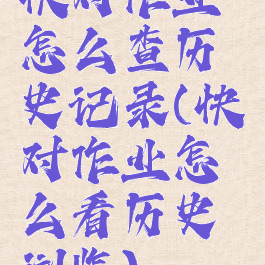 快对作业
怎么查历
史记录(快
对作业怎
么看历史
浏览)